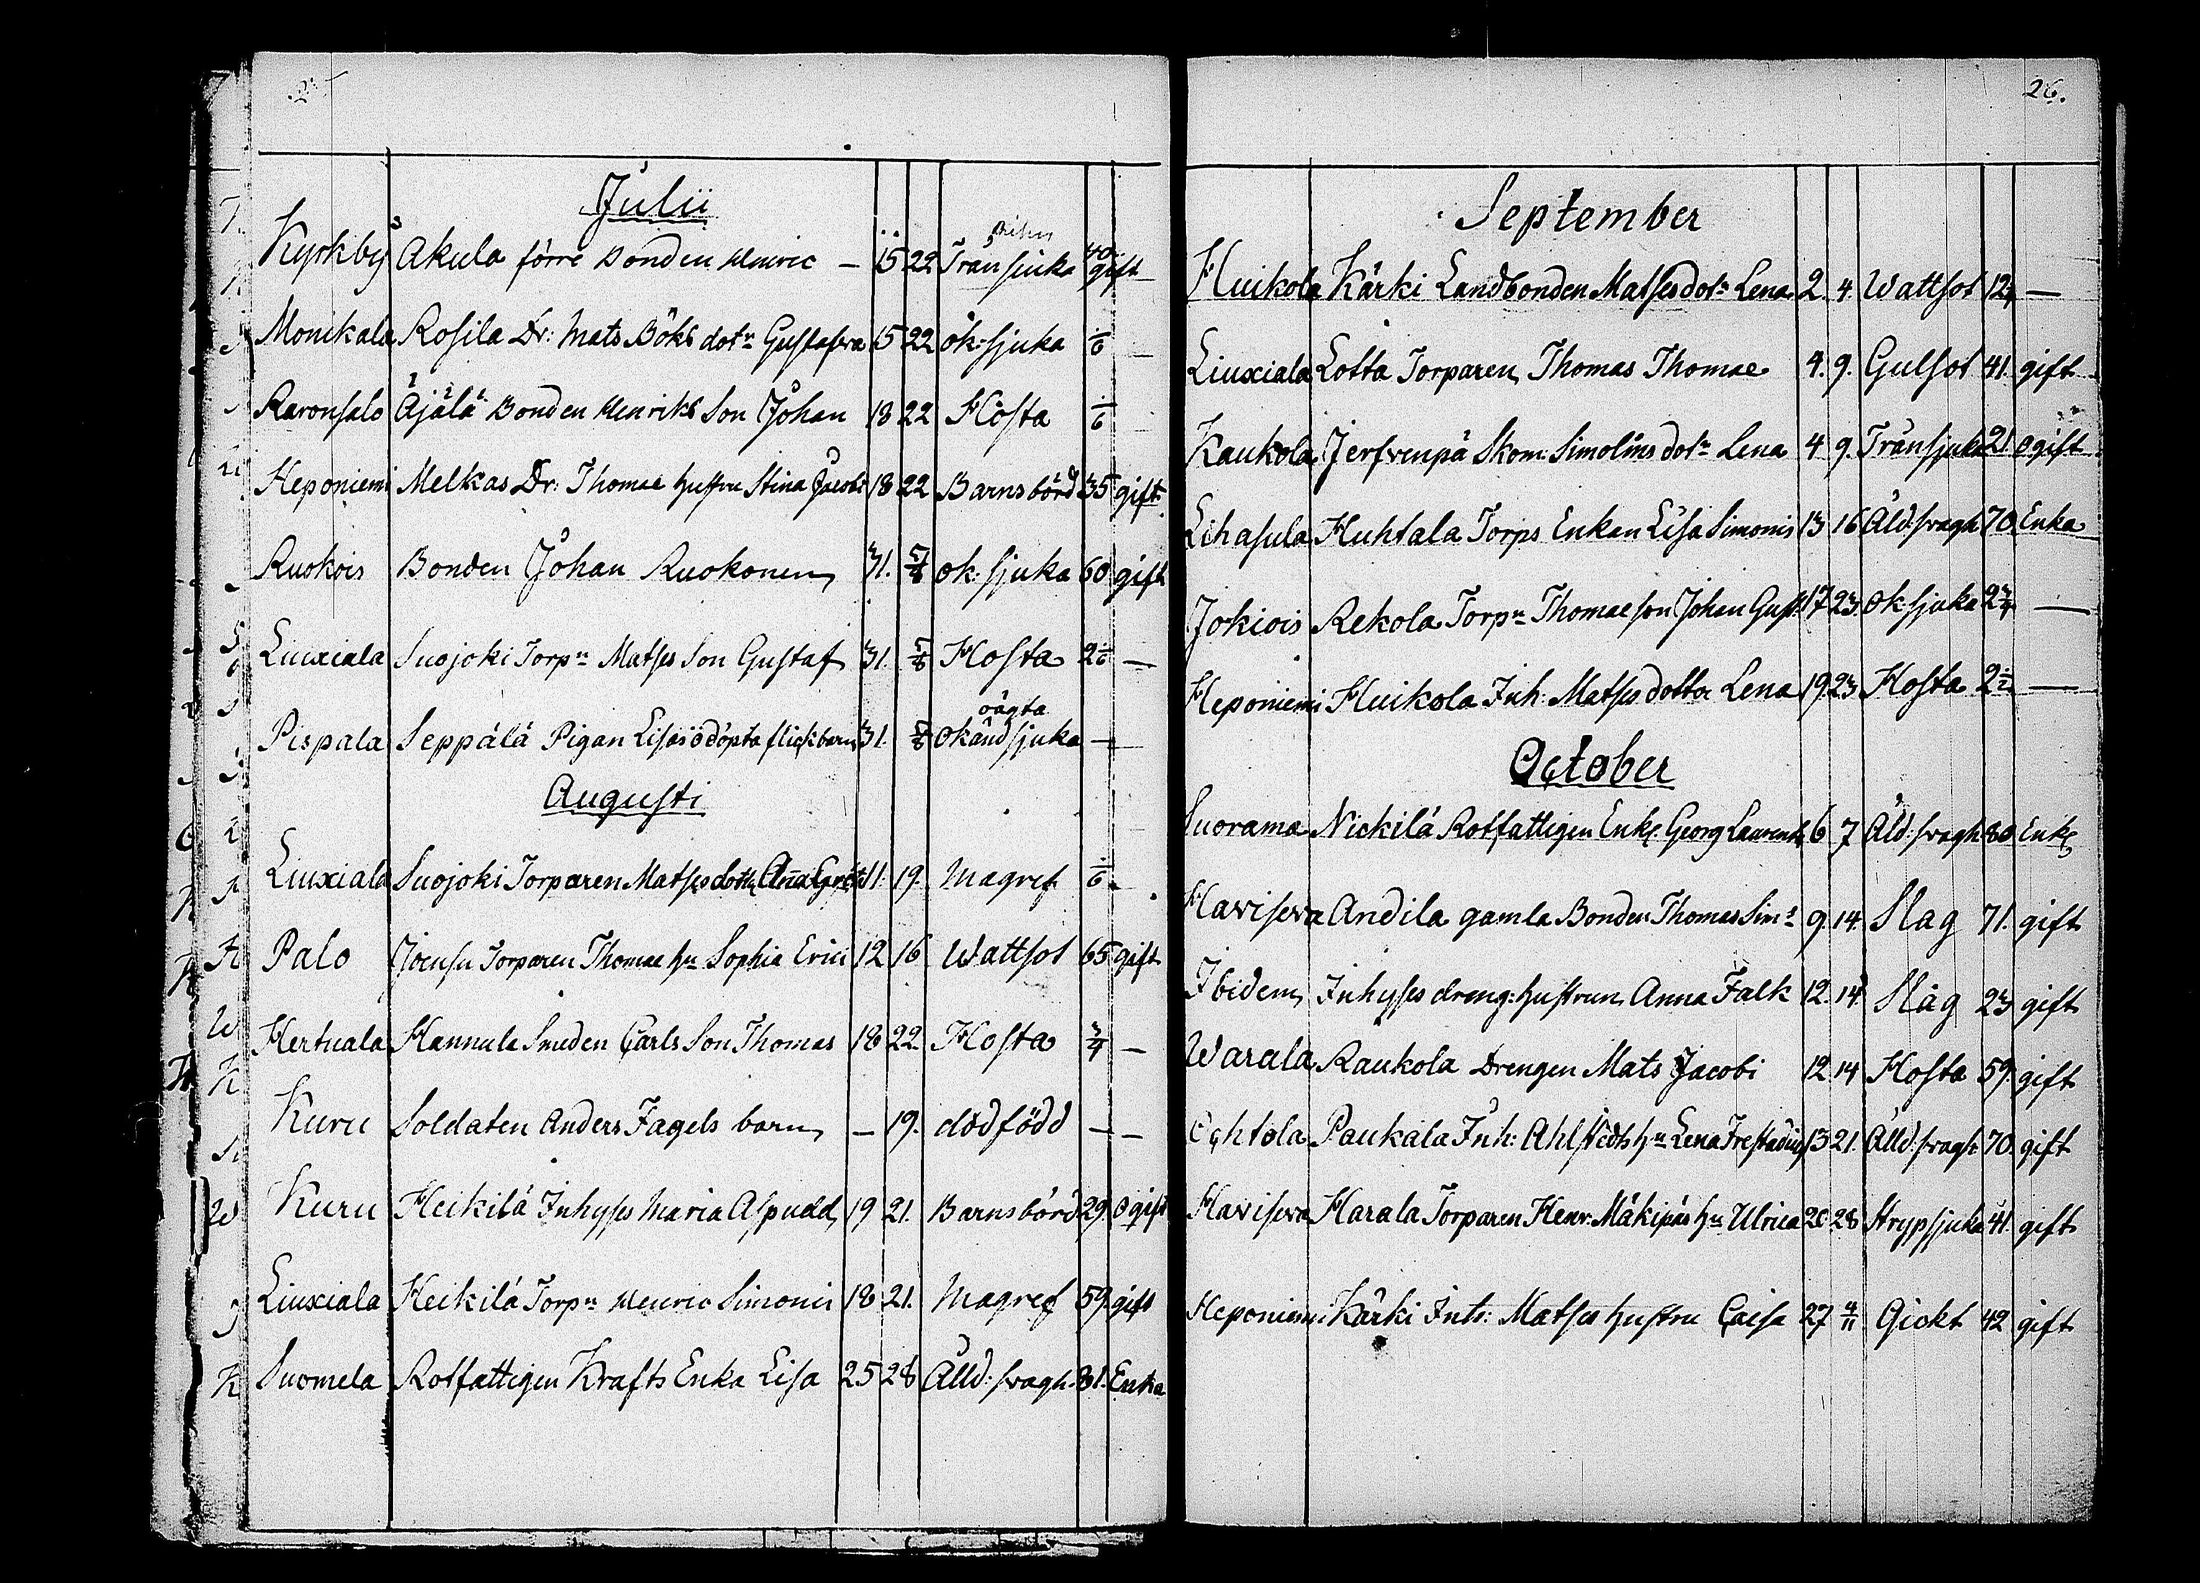 Julii
Kyrkby Akula förre Bonden Henric — 15 22 Trånsjuka 40 gift
Monikala Rosila Dr: Mats Böks dotr Gustafva 15 22 ok: sjuka 1/6 —
Ravonsalo Äjälä Bonden Henriks Son Johan 18 22 Hosta 1/6
Heponiemi Melkas Dr: Thomae hustru Stina Jacobi 18 22 Barnsbörd 35 gift
Ruokois Bonden Johan Ruokonen 31. 5/8 ok: sjuka 60 gift
Liuxiala Suojoki Torpn Matses Son Gustaf 31. 5/8 Hosta 2 1/6 —
oägta
Pispala Seppälä Pigan Lisas odöpta flickbarn 31. 5/8 okänd sjuka —
Augusti
Liuxiala Suojoki Torparen Matses dotter Anna Greta 11. 19. Magref 1/6 —
Palo Torparen Thomae hu Sophia Erici 12 16 Wattsot 65 gift
Hertuala Hannula Smeden Carls Son Thomas 18 22. Hosta 3/4 —
Kuru Soldaten Anders Fagels barn — 19. dödfödd — —
Kuru Heikilä Inhyses Maria Aspudd 19 21. Barnsbörd 29. Ogift
Liuxiala Heikilä Torpn Henric Simonis 18 21. Magref 59. gift
Suomela Rotfattigen Krafts Enka Lisa 25 28 Ålld: svagh. 81. Enka
26.
September
Huikola Kärki Landbonden Matses dotr Lena 2. 4. Wattsot 12 —
Liuxiala Lotta Torparen Thomas Thomae 4. 9. Gulsot 41. gift
Kaukola Jerfvenpä Skom: Simolins dotr Lena 4. 9. Trånsjuka 21. Ogift
Lihasula Huhtala Torps Enkan Lisa Simonis 13 16 Åld: svagh 70. Enka
Jokiois Rekola Torpn Thomae son Johan Gust: 17 23. Ok: sjuka 2 3/4 —
Heponiemi Huikola Inh: Matses dotter Lena 19 23 Hosta 2 1/2 —
October
Suorama Nickilä Rotfattigen Enkl. Georg Laurentii 6 7 Åld: svagh 80 Enkl
Havisera Andila gamla Bonden Thomas Sims 9. 14. Slag 71. gift
Ibidem Inhyses dreng: hustrun Anna Falk 12. 14. Slag 23 gift
Warala Raukola Drengen Mats Jacobi 12. 14 Hosta 59. gift
Ochtola Paukala Inh: Ahlstedts hu Lena 13 21. Ålld: svagh 70. gift
Havisera Harala Torparen Henr. Mäkipäs hu Ulrica 26 28 Strypsjuka 41. gift
Heponiemi Kärki Inh: Matses hustru Caisa 27 4/11 Gickt 42 gift